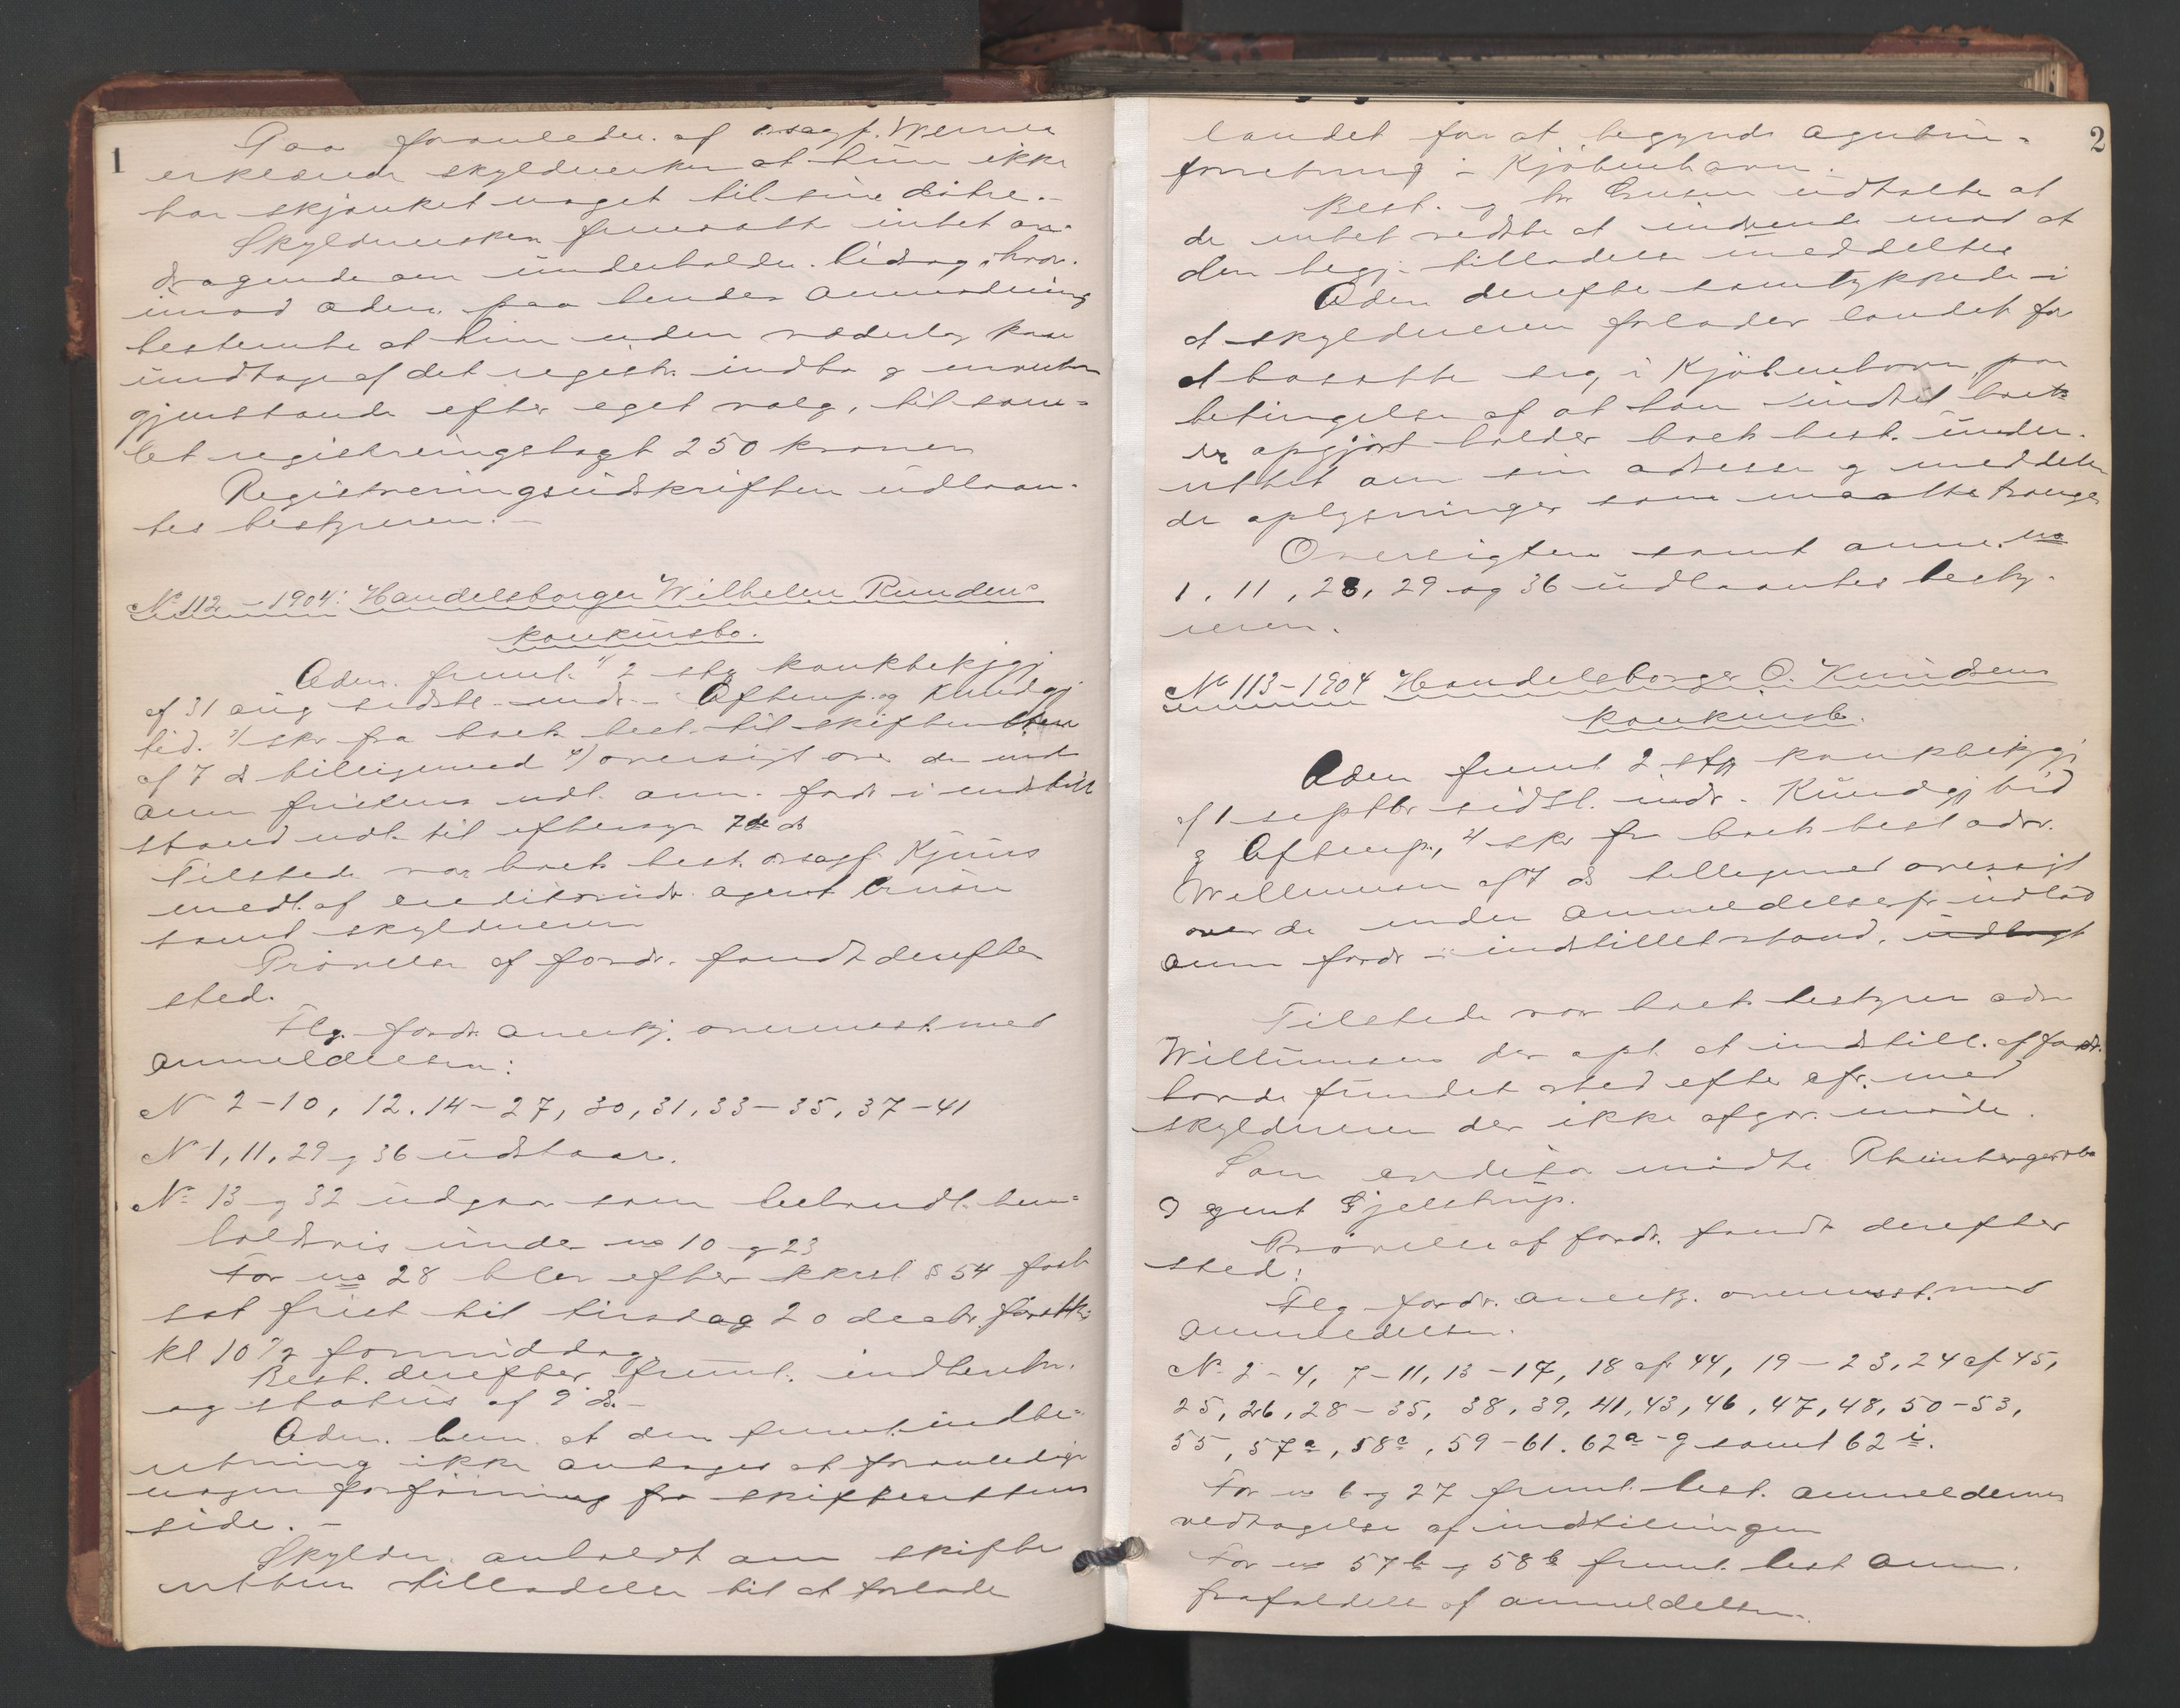 1
Paa foranledn. af o.r.sagf. Werner
erklærede skyldnersken at hun ikke
har skjænket noget til sine døtre.-
Skyldnersken fremsatte intet an-
dragende om underholdn. bidrag, hvor-
imod adm. paa hendes anmodning
bestemte at hun uden vederlag kan
undtage af det registr. indbo g
gjenstande efter eget valg, til sam-
let registreringstagt 250 kroner
Registreringsudskriften udlaan-
tes bestyreren.-
No 112 - 1904: Handelsborger Wilhelm Rundens
konkursbo.
Adm. freml. 1/ 2 stk konkbekjgj
af 31 aug sidstl. indr. i Aftenp. og Kundgj
tid. 3/ skr fra boets best. til skifteretten
af 7 ds tilligemed 4/ oversigt over de ved
anm fristens udl. anm. fordr i indstill
stand udl. til eftersyn 7de ds
Tilstede var boets best. o.r.sagf. Kjuus
medl. af creditorudv. agent Cruse
samt skyldneren
Prøvelse af fordr. fandt derefter
sted.
Flg. fordr. anerkj. overensst. med
anmeldelsen:
No 2-10, 12. 14-27, 30, 31, 33-35, 37-41
No 1, 11, 29 g 36 udstaar.
No 13 g 32 udgaar som behandl. hen-
holdsvis under no 10 g 23
For no 28 blev efter kkrsl § 54 fast-
sat frist til tirsdag 20 decbr. førstk.
kl 10 1/2 formiddag.
Best. derefter freml. indberetn.
og status af 9 ds.-
Adm. bem. at den freml. indbe-
retning ikke antages at foranledige
nogen forføining fra skifterettens
side.-
Skyldn. anholdt om skifte
rettens tilladelse til at forlade
2
landet for at begynde agentur-
forretning i Kjøbenhavn.
Best. g hr Cruse udtalte at
de intet vidste at indvende mod at
den begj. tilladelse meddeltes
Adm derefter samtykkede i
at skyldneren forlader landet for
at bosætte sig i Kjøbenhavn paa
betingelse af at han indtil boet
er opgjort holder boets best. under-
rettet om sin adresse g meddeler
de oplysninger som maatte trænges
Oversigten samt anm. no
1, 11, 28, 29 og 36 udlaantes besty-
reren.
No 113-1904 Handelsborger O. Knudsens
konkursb.
Adm freml. 2 stk konkbekjgj
af 1 septbr sidstl. indr. i Kundgj tid
g Aftenp., 2/ skr fra boets best adv.
Willumsen af 7 ds tilligemed oversigt
over de inden anmeldelsesfr. udløb
anm fordr i indstillet stand, udlagt
Tilstede var boets bestyrer adv
Willumsen der opl. at indstill. af fordr.
havde fundet sted efter afr. med
skyldneren der ikke afgav møde.
Som creditor mødte
agent Gjelstrup.
Prøvelse af fordr. fandt derefter
sted:
Flg fordr. anerkj. overensst. med
anmeldelsen.
No 2-4, 7-11, 13-17, 18 af 44, 19-23, 24 af 45,
25, 26, 28-35, 38, 39, 41, 43, 46, 47, 48, 50-53,
55, 57a, 58a, 59-61. 62a-g samt 62i.
For no 6 g 27 freml. best. anmeldernes
vedtagelse af indstillingen
For no 57b g 58b freml. best anm.
frafaldelse af anmeldelsen.